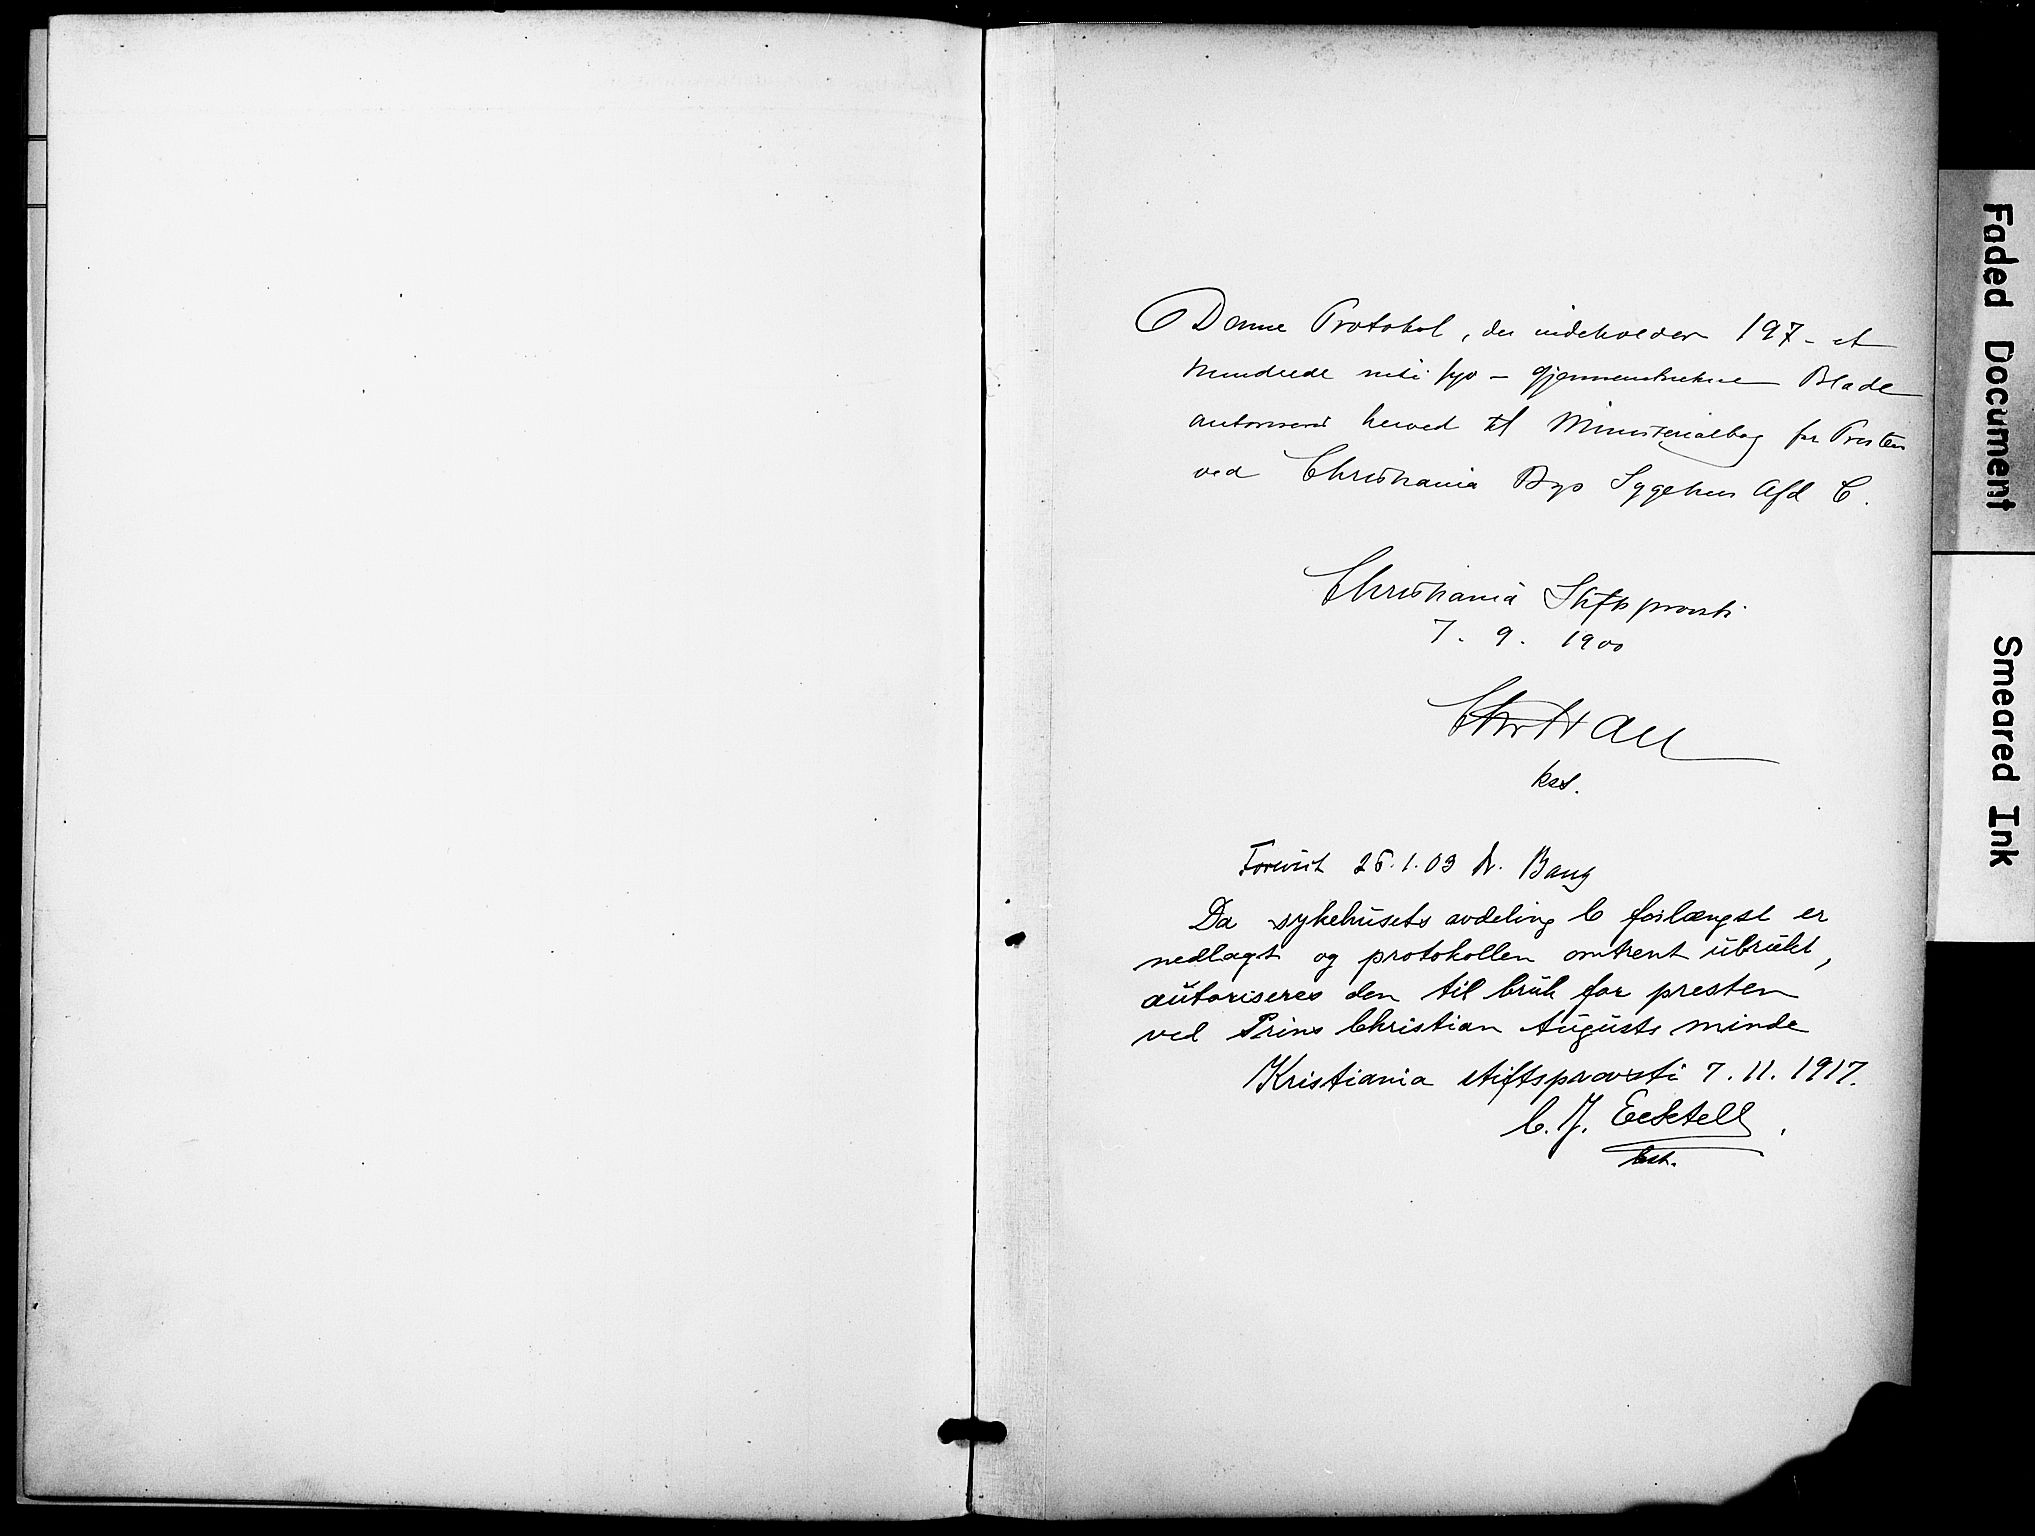 Denne Protokol, der indeholder 197 - et
hundrede nitti syv - gjennemtrukne Blade
autoriseres herved til Ministerialbog for Presten
ved Christiania Bys Sygehus Afd C.
Christiania Stiftsprovsti
7. 9. 1900
Chr Hall
kst.
Forevist 26.1.03 A. Bang
Da sykehusets avdeling C forlængst er
nedlagt og protokollen omtrent ubrukt,
autoriseres den til bruk for presten
ved Prins Christian Augusts minde
Kristiania stiftsprovsti 7. 11. 1917.
C. J.
kst.
Faded Document
Smeared Ink